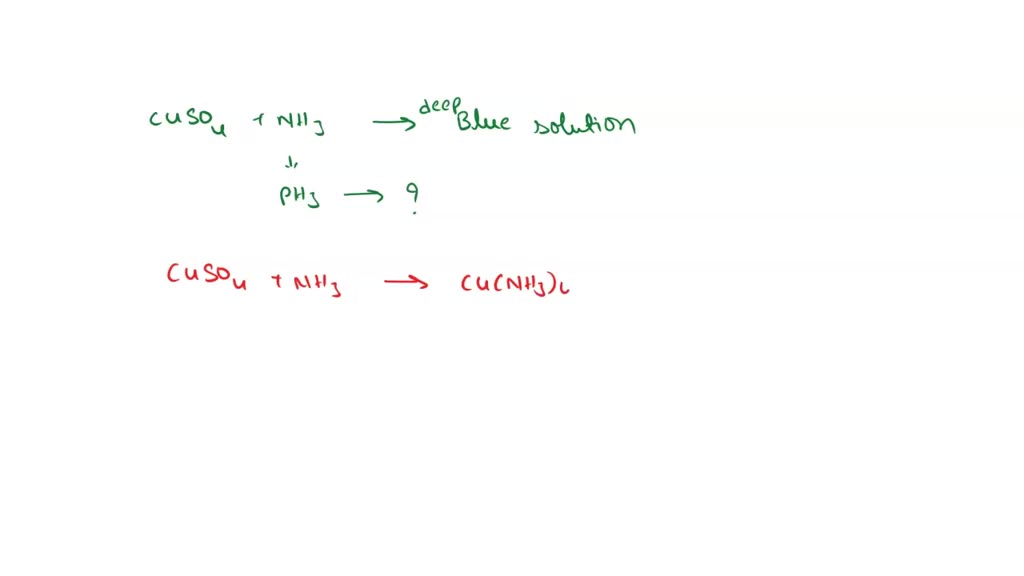 CuSO4 + NH3 → deep Blue solution
↓
PH3 → ?
CuSO4 + NH3 → Cu(NH3)